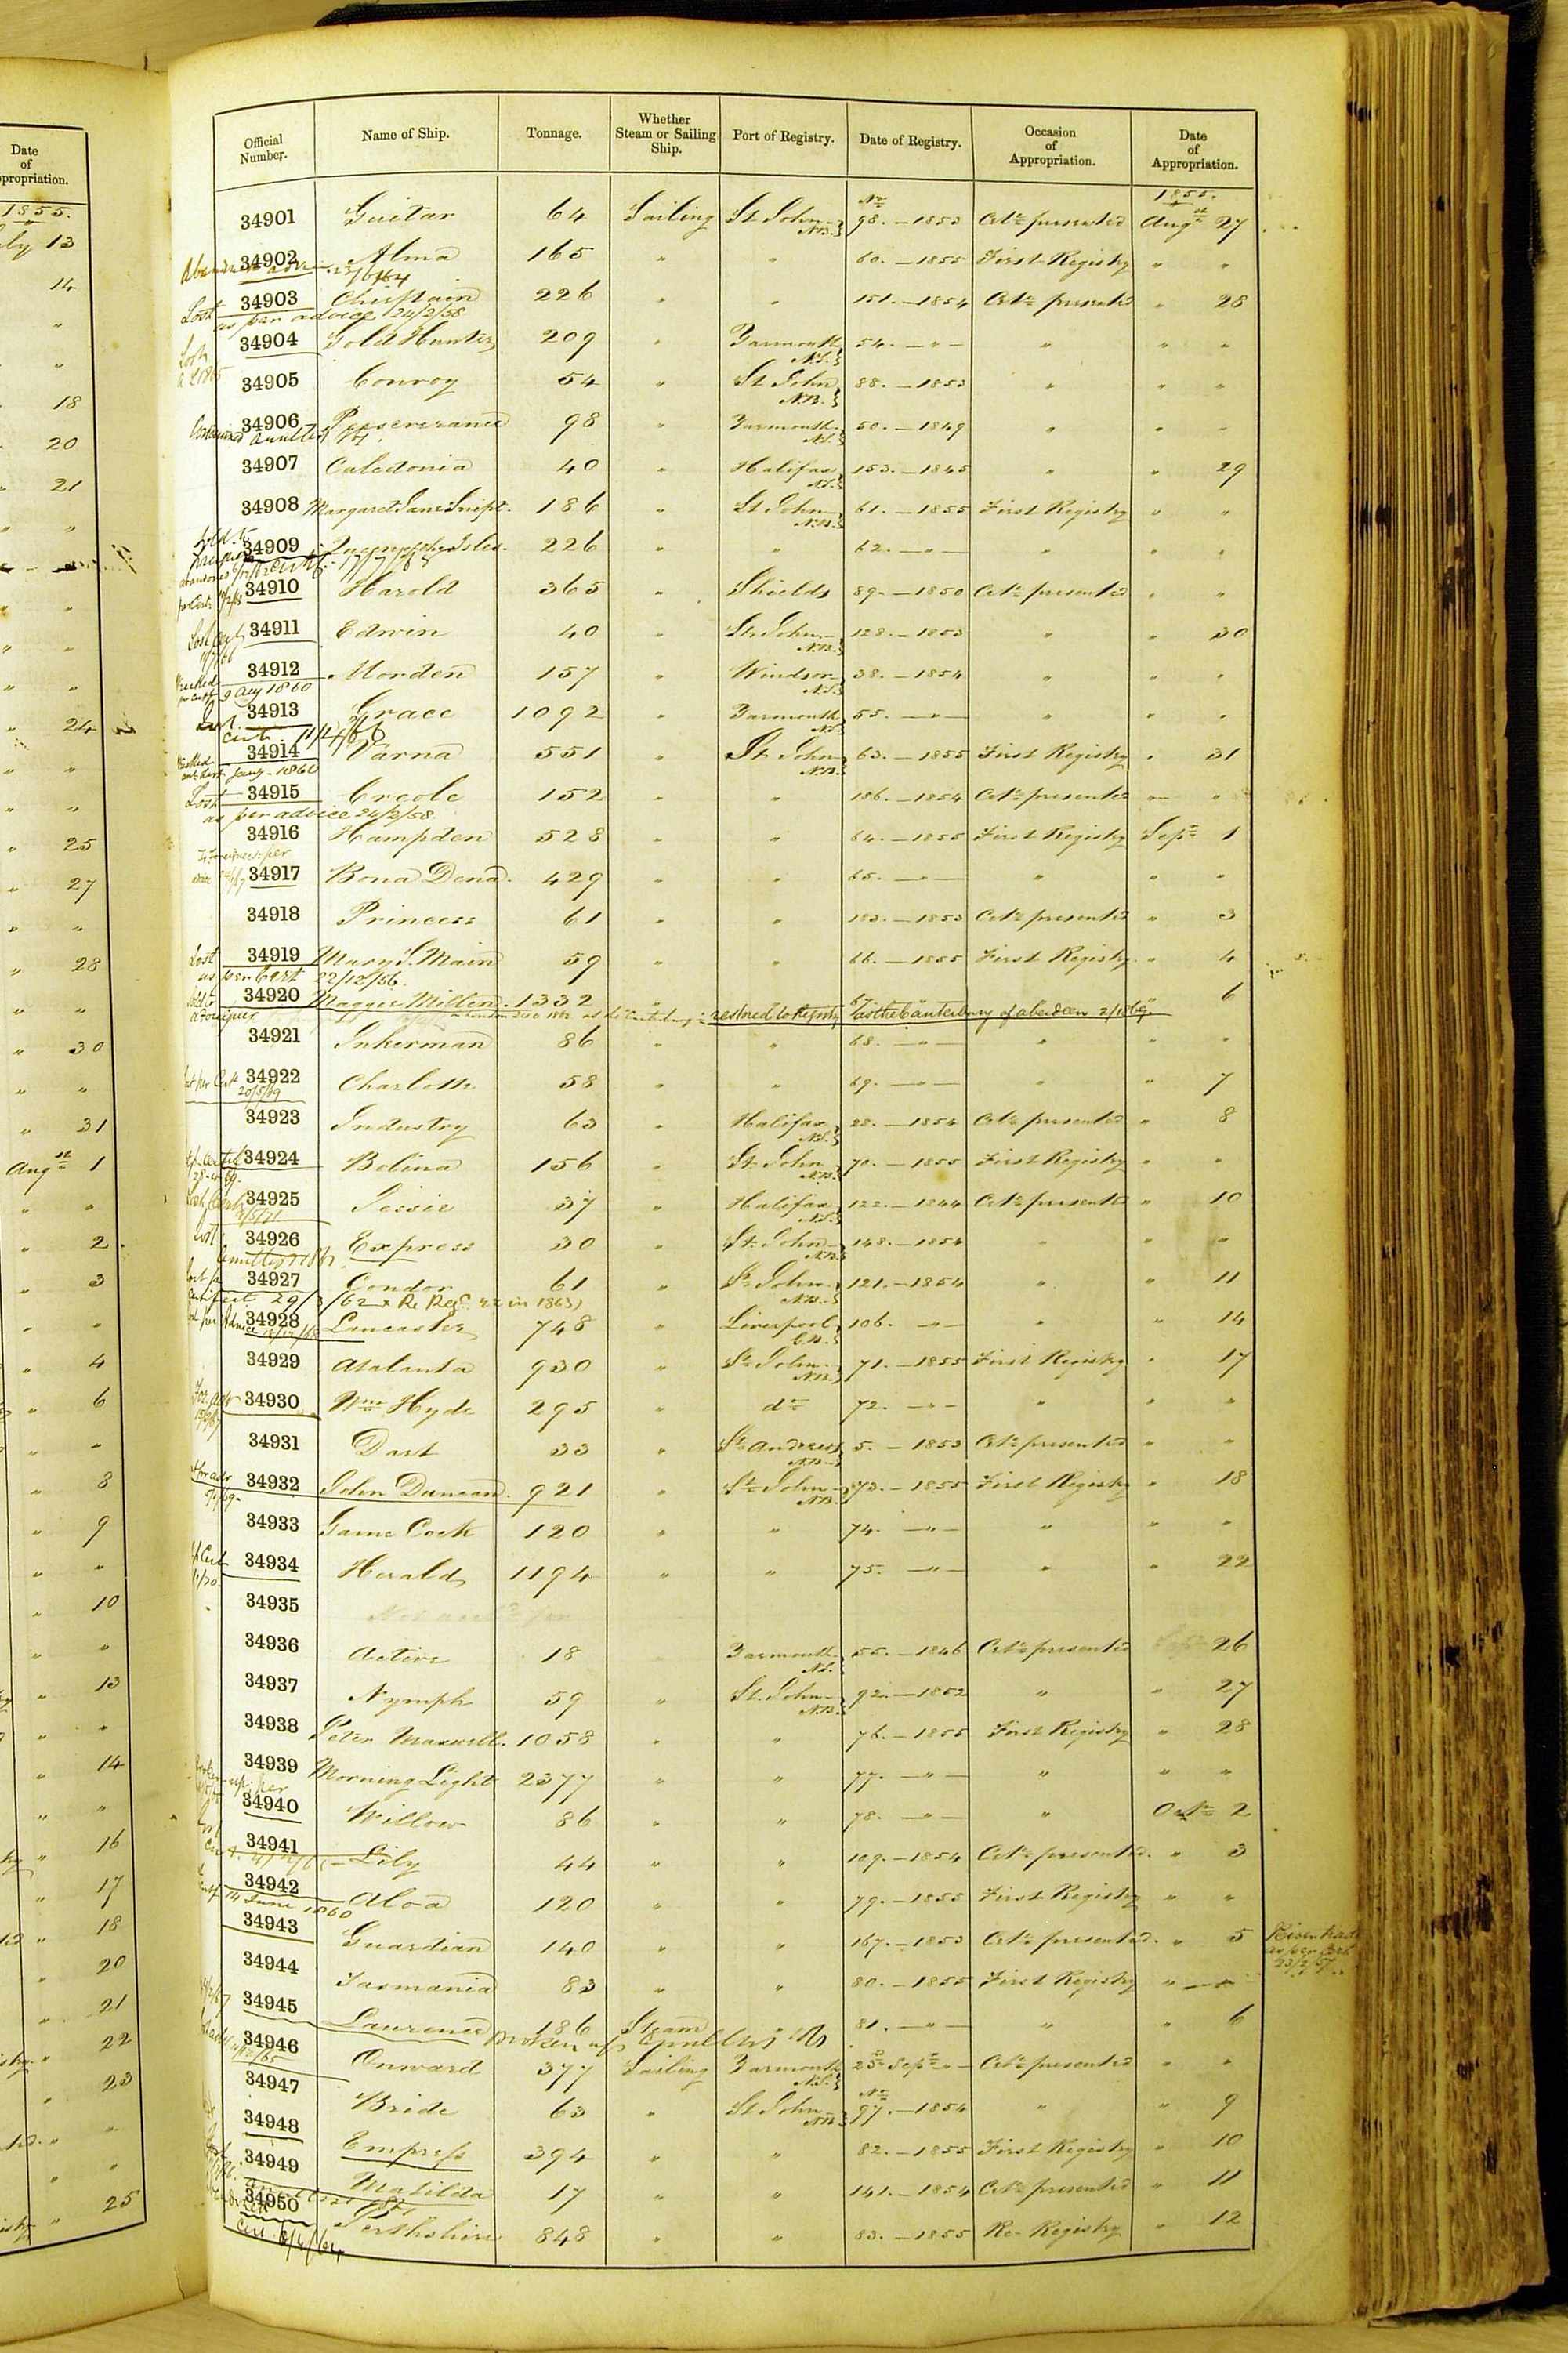 Date of Appropriation.
1855.
July 13
14
"
"
18
20
21
"
"
"
"
24
"
"
25
27
"
28
"
30
"
31
Augst 1
"
2
3
"
4
6
"
8
9
"
10
"
13
"
14
"
16
17
18
20
21
22
23
"
"
25
Official Number. Name of Ship. Tonnage. Whether Steam or Sailing Ship. Port of Registry. Date of Registry. Occasion of Appropriation. Date of Appropriation.
1855.
34901 Guitar 64 Sailing St John N.B. No 98. — 1853 Certe presented Augst 27
34902 Alma 165 " " 60. — 1855 First Registry " "
34903 Chieftain 226 " " 151. — 1854 Certe presented " 28
Lost as per advice 24/2/58
34904 Gold Hunter 209 " Yarmouth N.S. 54. — " — " " "
Lost
34905 Conroy 54 " St John N.B. 88. — 1853 " " "
34906 Perseverance 98 " Yarmouth N.S. 50. — 1849 " " "
34907 Caledonia 40 " Halifax N.S. 153. — 1845 " " 29
34908 Margaret Jane 186 " St John N.B. 61. — 1855 First Registry " "
34909 Queen of the Isles. 226 " " 62. — " — " " "
34910 Harold 365 " Shields 89. — 1850 Certe presented " "
34911 Edwin 40 " St John N.B. 128. — 1853 " " 30
34912 Morden 157 " Windsor N.S. 38. — 1854 " " "
Wrecked 9 Aug 1860
34913 Grace 1092 " Yarmouth N.S. 55. — " — " " "
34914 Varna 551 " St John N.B. 63. — 1855 First Registry " 31
Jany 1860
34915 Creole 152 " " 186. — 1854 Certe presented " "
Lost as per advice 24/2/58
34916 Hampden 528 " " 64. — 1855 First Registry Septr 1
34917 Bona Dena. 429 " " 65. — " — " " "
34918 Princess 61 " " 183. — 1853 Certe presented " 3
34919 Mary S. Main 59 " " 66. — 1855 First Registry " 4
Lost as per Cert 22/12/56
34920 Maggie Miller 1332 " " 67 " " 6
Sold to a Foreigner restored to Registry as the Canterbury of Aberdeen
34921 Inkerman 86 " " 68. — " — " " "
34922 Charlotte 58 " " 69. — " — " " 7
20/5/69
34923 Industry 63 " Halifax N.S. 28. — 1854 Certe presented " 8
34924 Bolina 156 " St John N.B. 70. — 1855 First Registry " "
34925 Jessie 37 " Halifax N.S. 122. — 1844 Certe presented " 10
34926 Express 30 " St John N.B. 148. — 1854 " " "
34927 Condor 61 " St John N.B. 121. — 1854 " " 11
29/3/62 Re Reg. in 1863
34928 Lancaster 748 " Liverpool 106. — " — " " 14
34929 Atalanta 930 " St John N.B. 71. — 1855 First Registry " 17
34930 Wm Hyde 295 " do 72. — " — " " "
34931 Dart 33 " St Andrews N.B. 5. — 1853 Certe presented " "
34932 John Duncan. 921 " St John N.B. 73. — 1855 First Registry " 18
34933 Game Cock 120 " " 74. — " — " " "
34934 Herald 1194 " " 75. — " — " " 22
34935
34936 Active 18 Yarmouth N.S. 55. — 1846 Certe presented Septr 26
34937 Nymph 59 " St John N.B. 92. — 1852 " " 27
34938 Peter Maxwell. 1058 " " 76. — 1855 First Registry " 28
34939 Morning Light 2377 " " 77. — " — " " "
34940 Willow 86 " " 78. — " — " Octr 2
34941 Lily 44 " " 109. — 1854 Certe presented. " 3
34942 Aloa 120 " " 79. — 1855 First Registry " "
14 June 1860
34943 Guardian 140 " " 167. — 1853 Certe presented. " 5
34944 Tasmania 83 " " 80. — 1855 First Registry " "
34945 Laurence 186 Steam " 81. — " — " " 6
Broken up
34946 Onward 377 Sailing Yarmouth N.S. 25 Septr " — Certe presented " "
34947 Bride 63 " St John N.B. No 97. — 1854 " " 9
34948 Empress 394 " " 82. — 1855 First Registry " 10
34949 Matilda 17 " " 141. — 1854 Certe presented " 11
34950 Perthshire 848 " " 83. — 1855 Re-Registry " 12
as per Cert 23/2/57